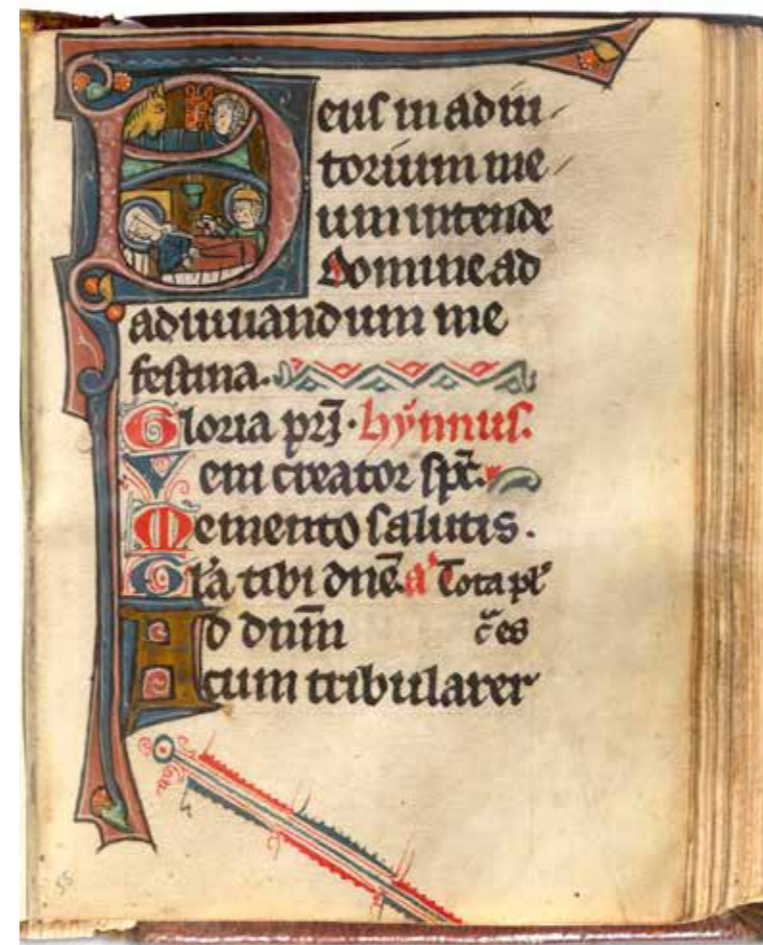 Deus in adiu
torium me
um intende
Domine ad
adiuuandum me
festina.
Gloria pr̃i. hẏmnus.
Veni creator sp̃c.
Memento salutis.
Gl̃a tibi dñe. a Tota pl̃
Ad dñm c̃es
cum tribularer
55